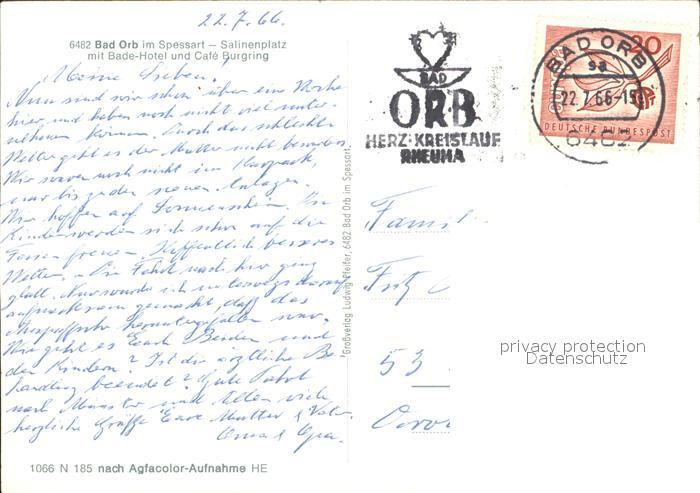 22.7.66.
6482 Bad Orb im Spessart – Salinenplatz
mit Bade-Hotel und Café Burgring
Meine Lieben.
Nun sind wir schon über eine Woche
hier und haben noch nicht viel unter-
nehmen können. Durch das schlechte
Wetter geht es der Mutter nicht besonders
Wir waren noch nicht im Kurpark,
nur bis zu den neuen Anlagen.
Wir hoffen auf Sonnenschein. Die
Kinder werden sich schon auf die
Ferien freuen. Hoffentlich besseres
Wetter. – Die Fahrt nach hier ging
glatt. Nur wurde ich unterwegs darauf
aufmerksam gemacht, daß das
herunter gefallen war.
Wie geht es Euch Beiden und
den Kindern? Ist die ärztliche Be
handlung beendet? Gute Fahrt
nach Münster und Allen viele
herzliche Grüße Eure Mutter & Vater
Oma & Opa.
1066 N 185 nach Agfacolor-Aufnahme HE
Großverlag Ludwig Pfeifer, 6482 Bad Orb im Spessart
BAD
ORB
HERZ·KREISLAUF
RHEUMA
20
BAD ORB
sa
22.7.66-15
6482
DEUTSCHE BUNDESPOST
Famil
Fritz
53
privacy protection
Datenschutz